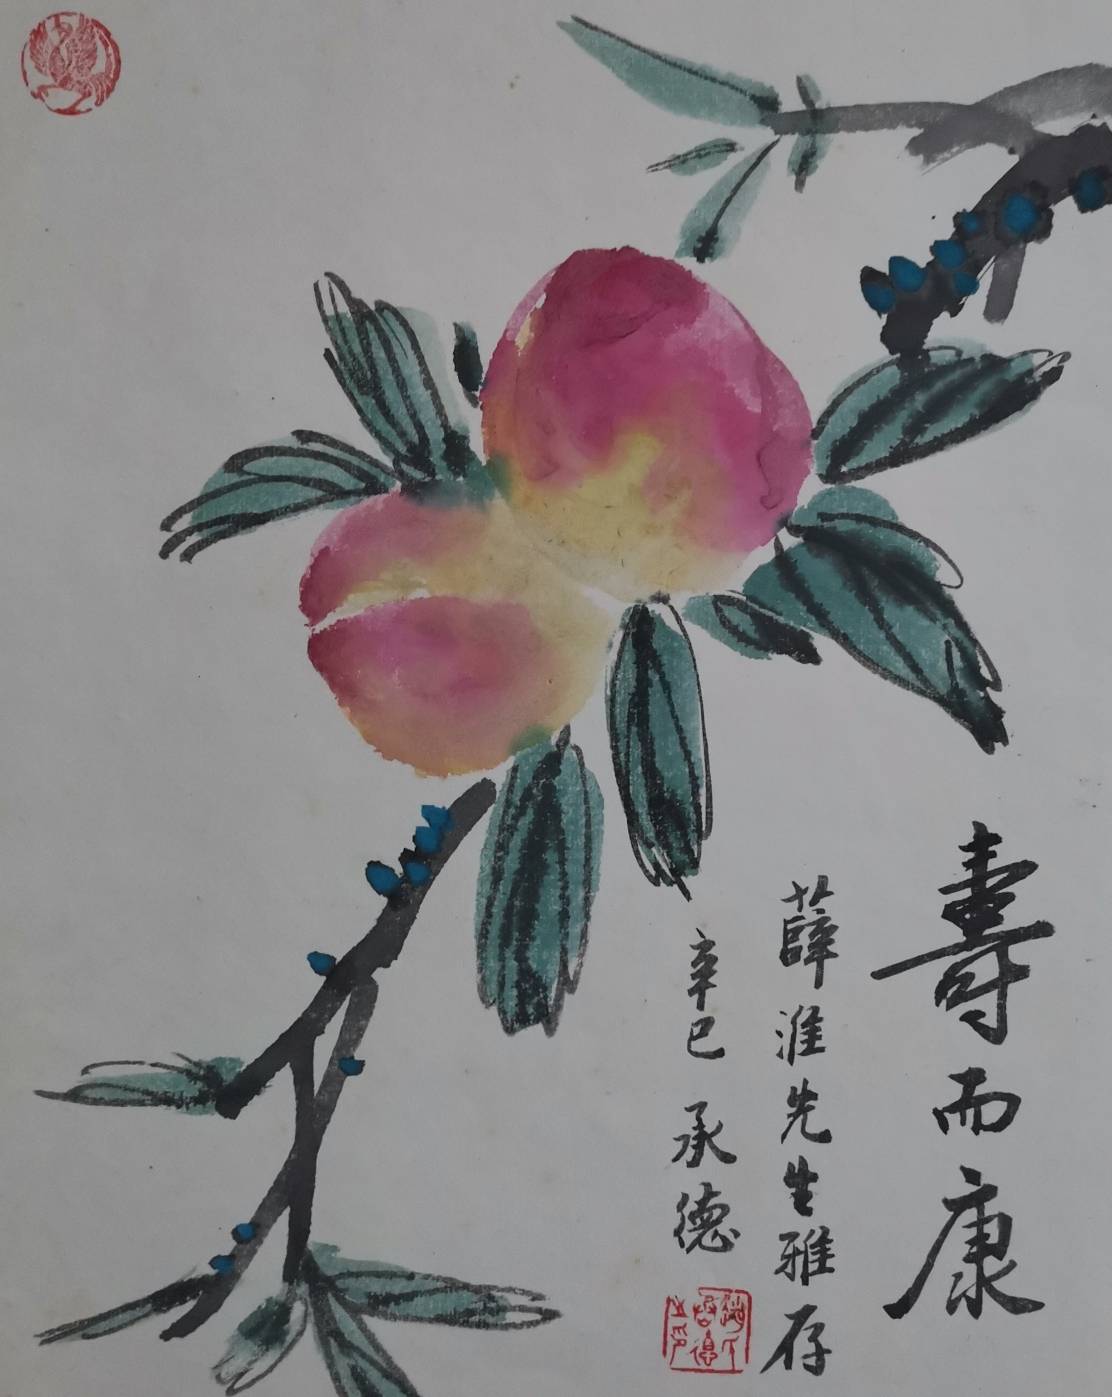 壽而康
薛淮先生雅存
辛巳 承德